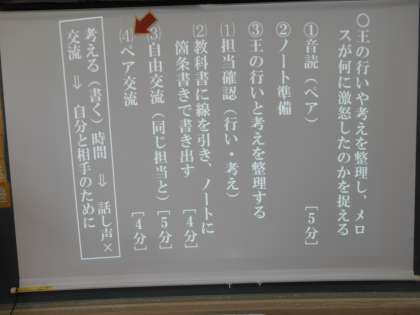 ○王の行いや考えを整理し、メロ
スが何に激怒したのかを捉える
①音読（ペア）［５分］
②ノート準備
③王の行いと考えを整理する
⑴担当確認（行い・考え）
⑵教科書に線を引き、ノートに
箇条書きで書き出す［４分］
⑶自由交流（同じ担当と）［５分］
⑷ペア交流［４分］
考える（書く）時間 ⇒ 話し声×
交流 ⇒ 自分と相手のために